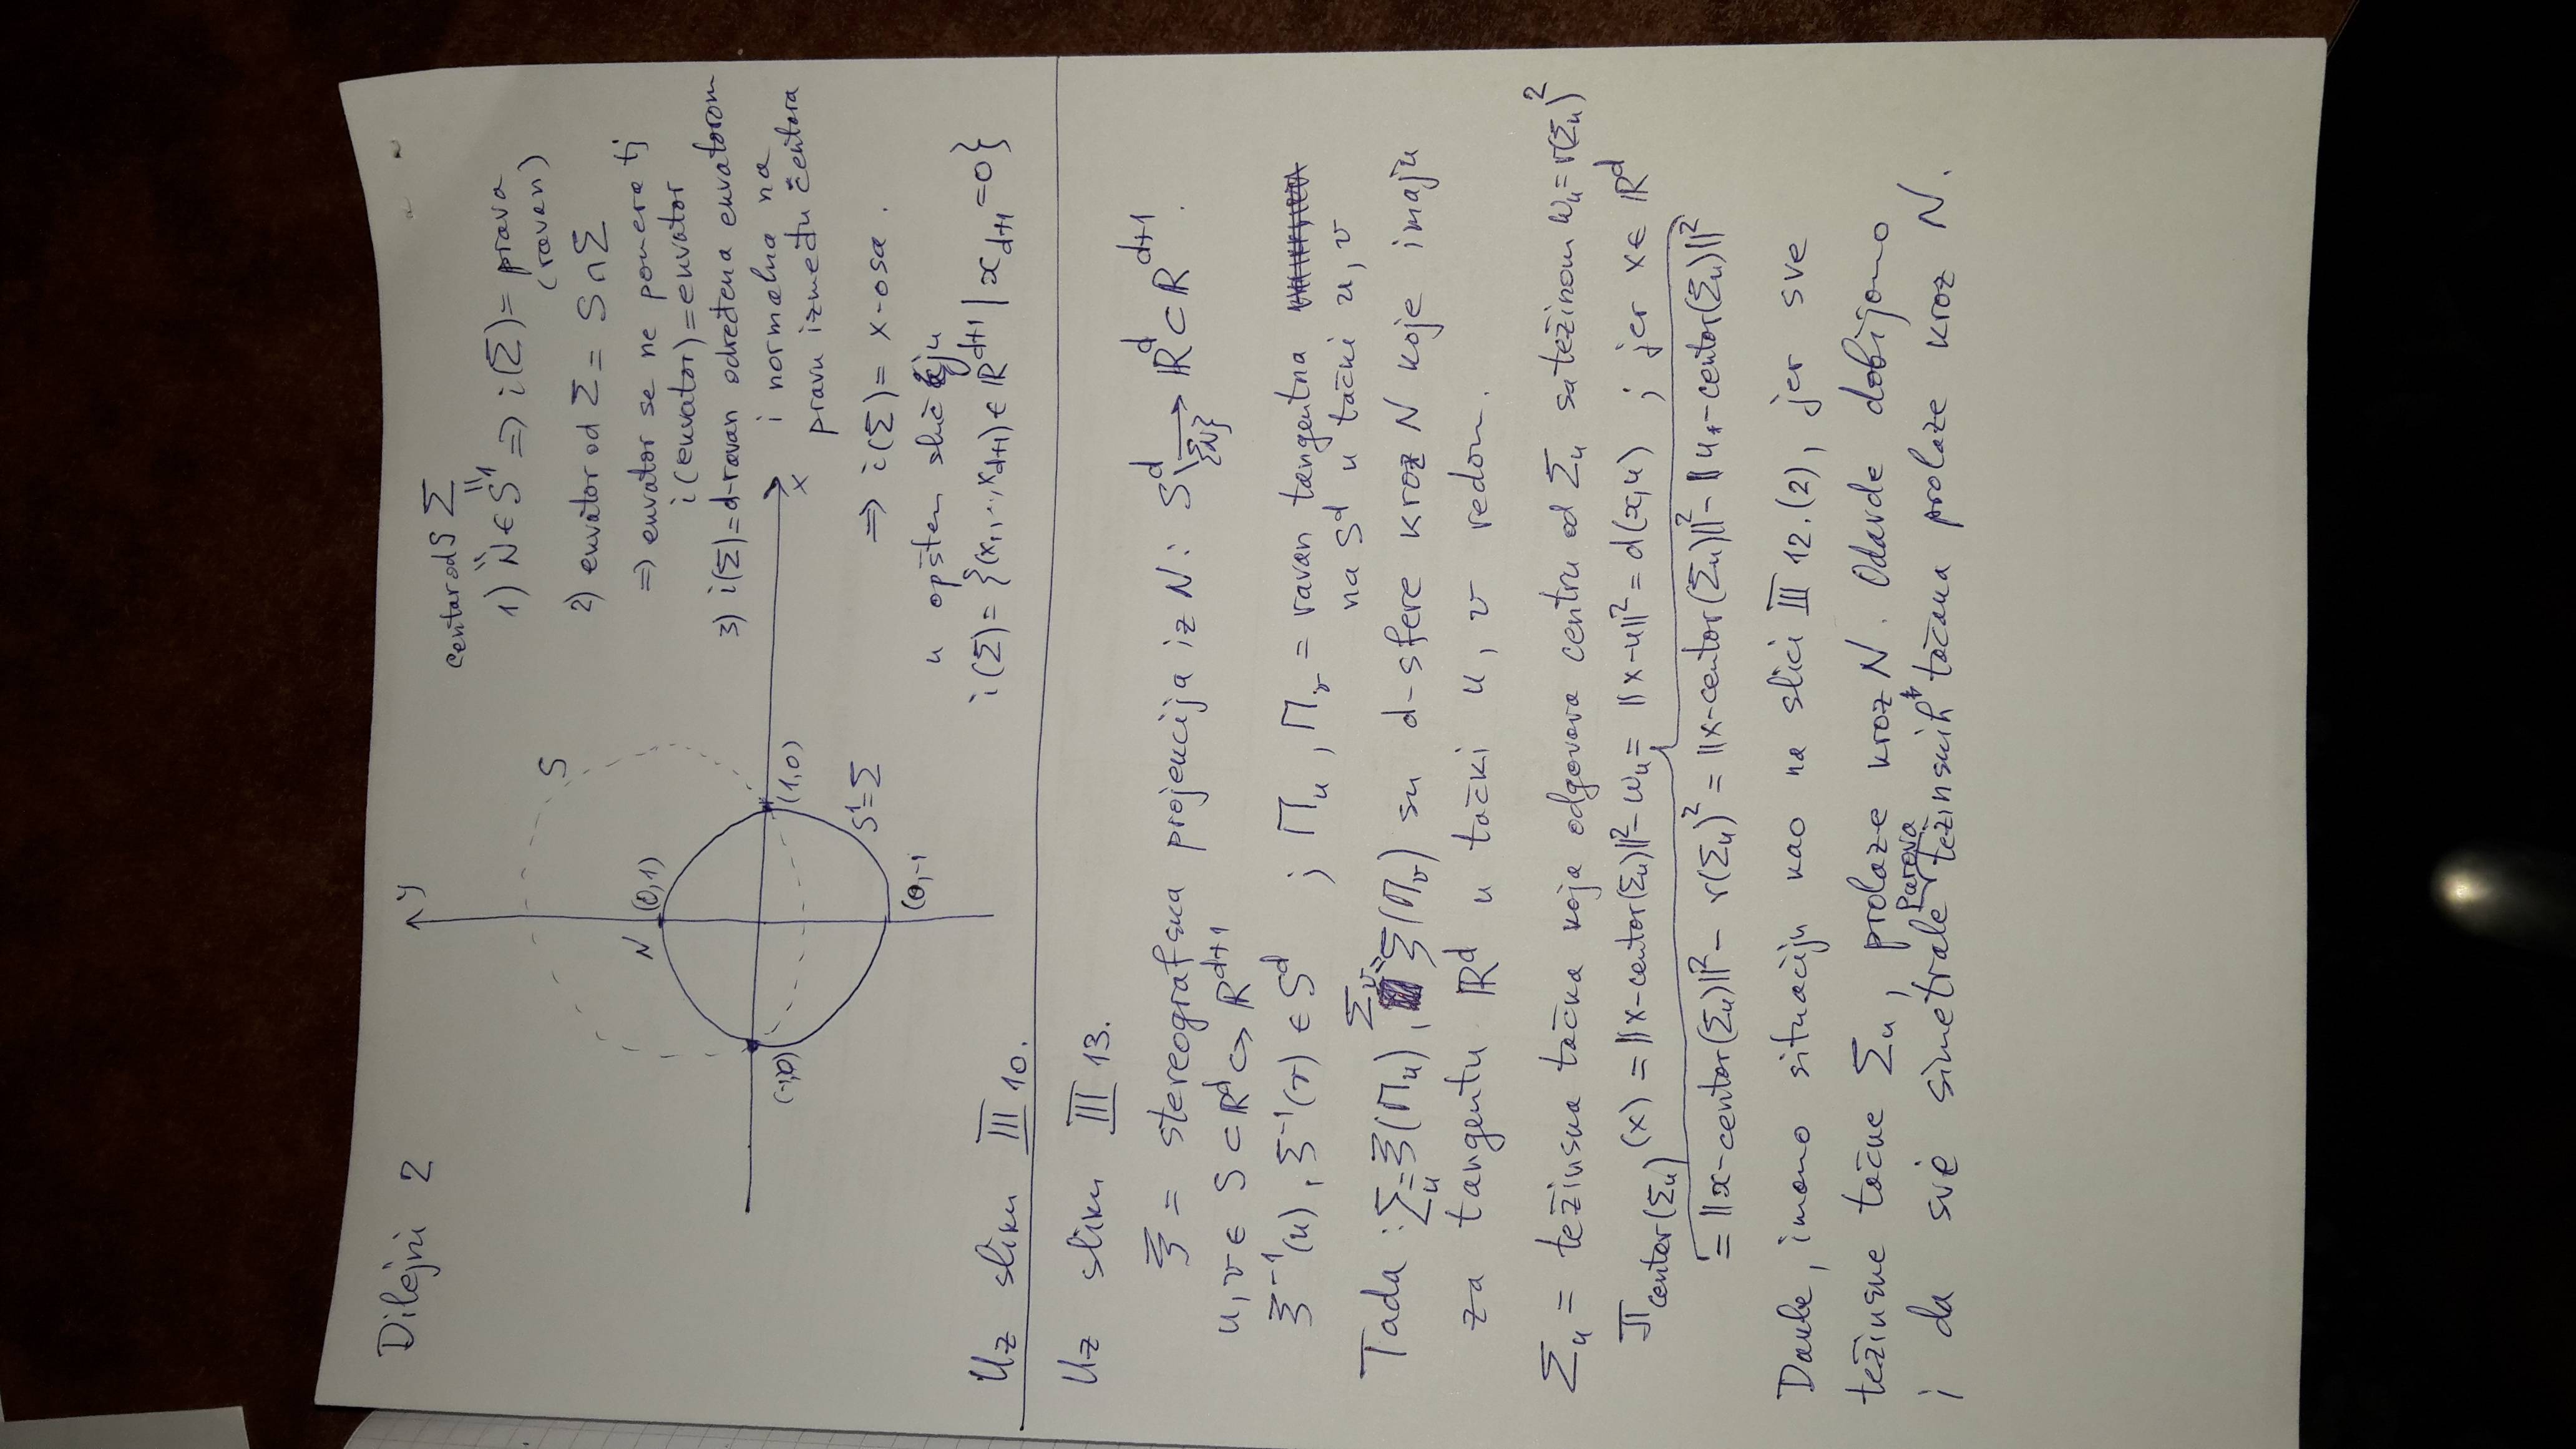 Dilejni 2
y
N
(0,1)
S
(-1,0)
(1,0)
x
S¹=Σ
(0,-1
centar od S Σ
1) N ∈ S¹ ⇒ i(Σ) = prava
(ravan)
2) ekvator od Σ = S ∩ Σ
⇒ ekvator se ne pomera tj
i(ekvator) = ekvator
3) i(Σ) = d-ravan određena ekvatorom
i normalna na
pravu između centara
⇒ i(Σ) = x-osa.
u opštem slučaju
i(Σ) = {(x₁,..,x_{d+1}) ∈ ℝ^{d+1} | x_{d+1} = 0}
Uz sliku III 10.
Uz sliku III 13.
ξ = stereografska projekcija iz N: S^d \ {N} → ℝ^d ⊂ ℝ^{d+1}.
u, v ∈ S ⊂ ℝ^d ↪ ℝ^{d+1}
ξ⁻¹(u), ξ⁻¹(v) ∈ S^d ; Π_u, Π_v = ravan tangentna
na S^d u tački u, v
Tada: Σ_u = ξ(Π_u), Σ_v = ξ(Π_v) su d-sfere kroz N koje imaju
za tangentu ℝ^d u tački u, v redom.
Σ_u = težinska tačka koja odgovara centru od Σ_u sa težinom w_u = r(Σ_u)²
π_{centar(Σ_u)}(x) = ||x-centar(Σ_u)||² - w_u = ||x-u||² = d(x,u) ; jer x ∈ ℝ^d
= ||x-centar(Σ_u)||² - r(Σ_u)² = ||x-centar(Σ_u)||² - ||u-centar(Σ_u)||²
Dakle, imamo situaciju kao na slici III 12.(2), jer sve
težinske tačke Σ_u, prolaze kroz N. Odavde dobijamo
i da sve simetrale parova težinskih tačaka prolaze kroz N.